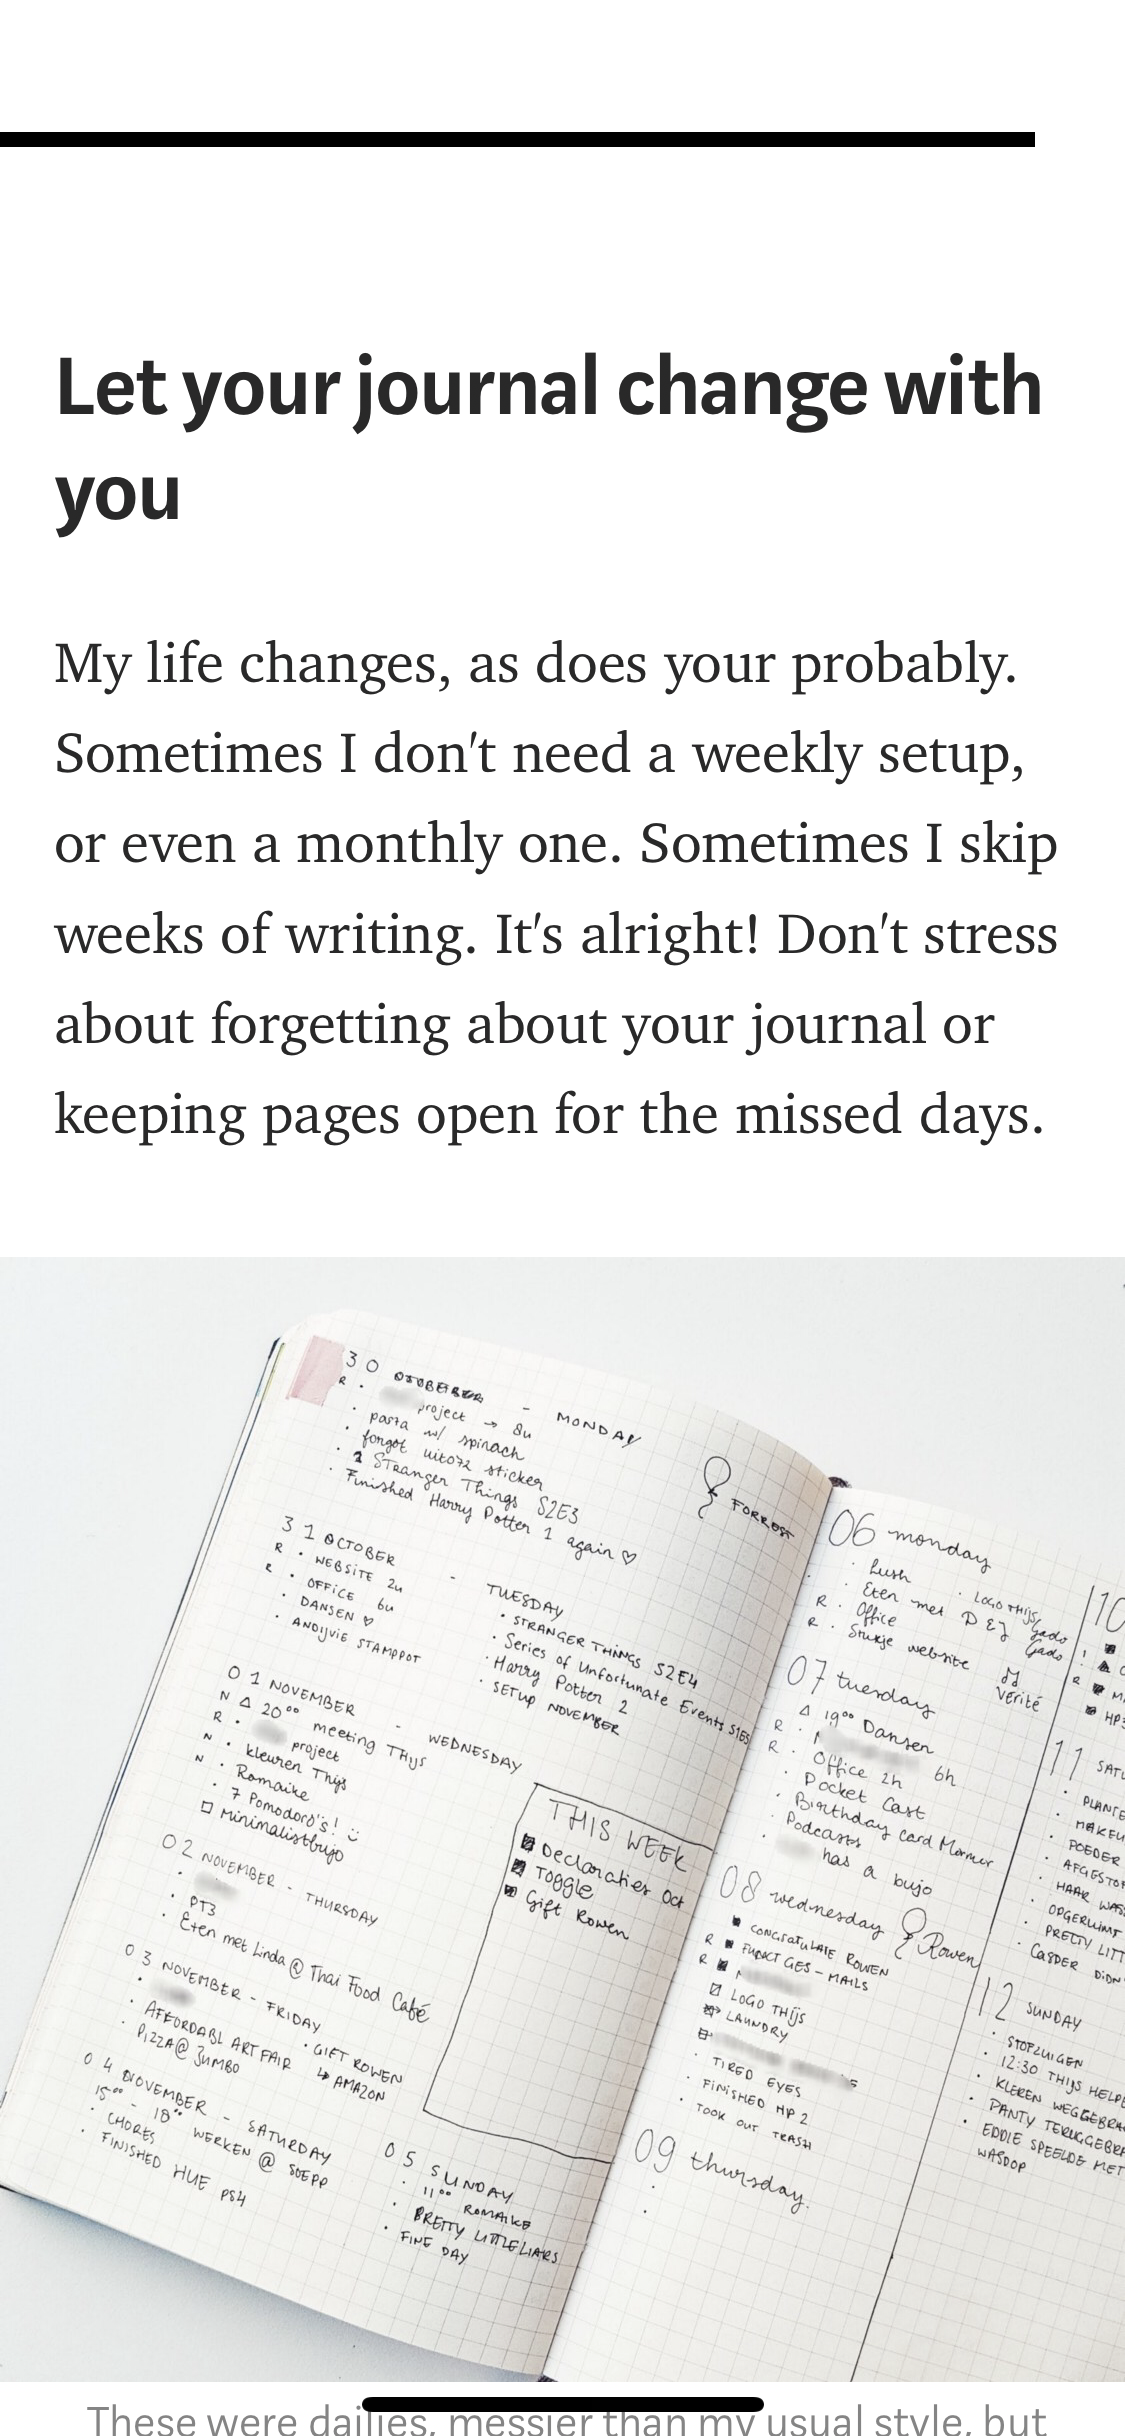 Let your journal change with
you
My life changes, as does your probably.
Sometimes I don't need a weekly setup,
or even a monthly one. Sometimes I skip
weeks of writing. It's alright! Don't stress
about forgetting about your journal or
keeping pages open for the missed days.
30 - MONDAY
R · project → 8u
· pasta w/ spinach
· forgot sticker
· Stranger Things S2E3
· Finished Harry Potter 1 again ♡
FORREST
31 OCTOBER - TUESDAY
R · WEBSITE 2u
R · OFFICE 6u
· DANSEN ♡
· ANDIJVIE STAMPPOT
· STRANGER THINGS S2E4
· Series of Unfortunate Events S1E5
· Harry Potter 2
· SETUP NOVEMBER
01 NOVEMBER - WEDNESDAY
N △ 20⁰⁰ meeting Thijs
R · project
N · kleuren Thijs
N · Romaike
· 7 Pomodoro's!
□ Minimalistbujo
THIS WEEK
Declaraties Oct
Toggle
Gift Rowen
02 NOVEMBER - THURSDAY
· PT3
· Eten met Linda @ Thai Food Café
03 NOVEMBER - FRIDAY
· AFFORDABL ART FAIR
· PIZZA @ JUMBO
· GIFT ROWEN
↳ AMAZON
04 NOVEMBER - SATURDAY
15⁰⁰ - 18⁰⁰ WERKEN @ SOEPP
· CHORES
· FINISHED HUE PS4
05 SUNDAY
· 11⁰⁰ ROMAIKE
· PRETTY LITTLE LIARS
· FINE DAY
06 monday
· Lush
· Eten met D & J
R · Office
R · Stukje website
· LOGO THIJS
Gado
Gado
Verité
07 tuesday
△ 19⁰⁰ Dansen
R · 6h
R · Office 2h
· Pocket Cast
· Birthday card
· Podcasts
· has a bujo
08 wednesday Rowen
CONGRATULATE ROWEN
R FUNCT GES - MAILS
R
LOGO THIJS
LAUNDRY
· TIRED EYES
· FINISHED HP 2
· TOOK OUT TRASH
09 thursday.
10
11
· PRETTY
· CASPER
12 SUNDAY
· STOFZUIGEN
· 12:30 THIJS
· KLEREN
· PANTY
· EDDIE SPEELDE MET
WASDOP
These were dailies, messier than my usual style, but